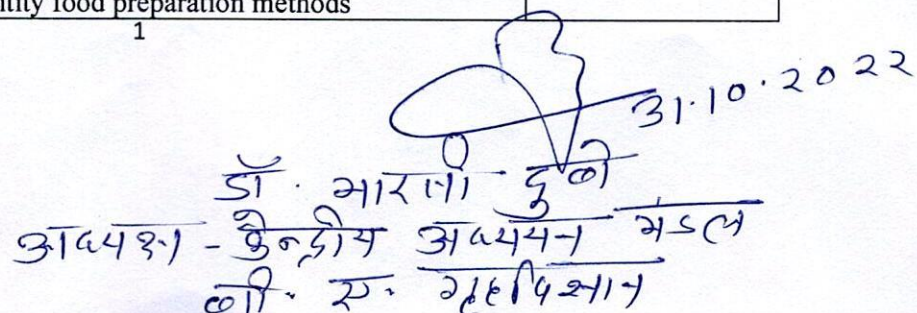 ntity food preparation methods
1
31.10.2022
डॉ. भारती दुबे
अध्यक्ष - केन्द्रीय अध्ययन मंडल
बी. ए. गृहविज्ञान